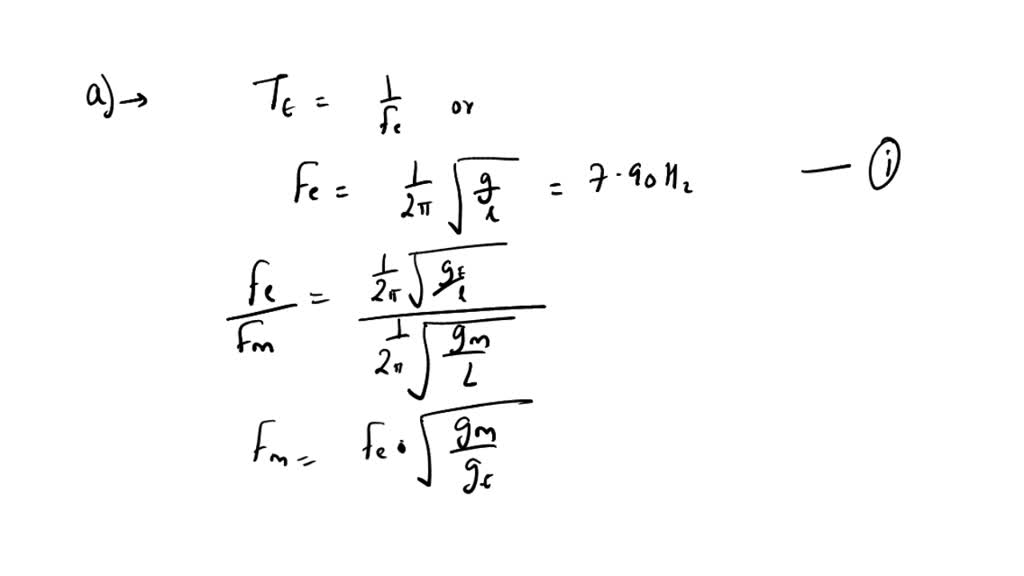 a)→ T_E = 1/f_e or
F_e = 1/2π √(g/l) = 7.90 Hz — (i)
f_e/F_m = (1/2π √(g_E/l))/(1/2π √(g_m/L))
F_m = f_e • √(g_m/g_E)